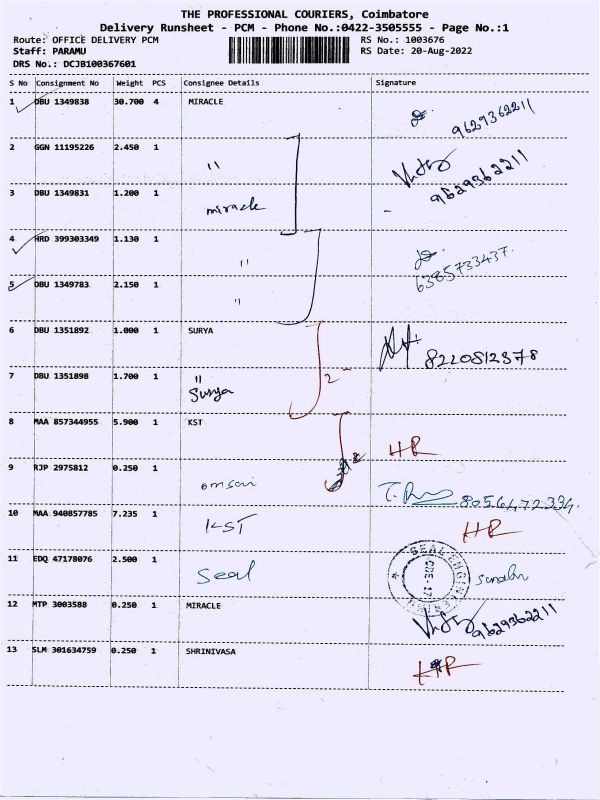 THE PROFESSIONAL COURIERS, Coimbatore
Delivery Runsheet - PCM - Phone No.:0422-3505555 - Page No.:1
Route: OFFICE DELIVERY PCM RS No.: 1003676
Staff: PARAMU RS Date: 20-Aug-2022
DRS No.: DCJB100367601
S No Consignment No Weight PCS Consignee Details Signature
1 DBU 1349838 30.700 4 MIRACLE 9629362211
2 GGN 11195226 2.450 1 " 9629362211
3 DBU 1349831 1.200 1 miracle
4 HRD 399303349 1.130 1 " 6385733437
5 DBU 1349783 2.150 1 "
6 DBU 1351892 1.000 1 SURYA 8220812378
7 DBU 1351898 1.700 1 " Surya 2
8 MAA 857344955 5.900 1 KST HR
9 RJP 2975812 0.250 1 omsai 8056472334
10 MAA 940857785 7.235 1 KST HR
11 EDQ 47178076 2.500 1 Seal
12 MTP 3003588 0.250 1 MIRACLE 9629362211
13 SLM 301634759 0.250 1 SHRINIVASA HR